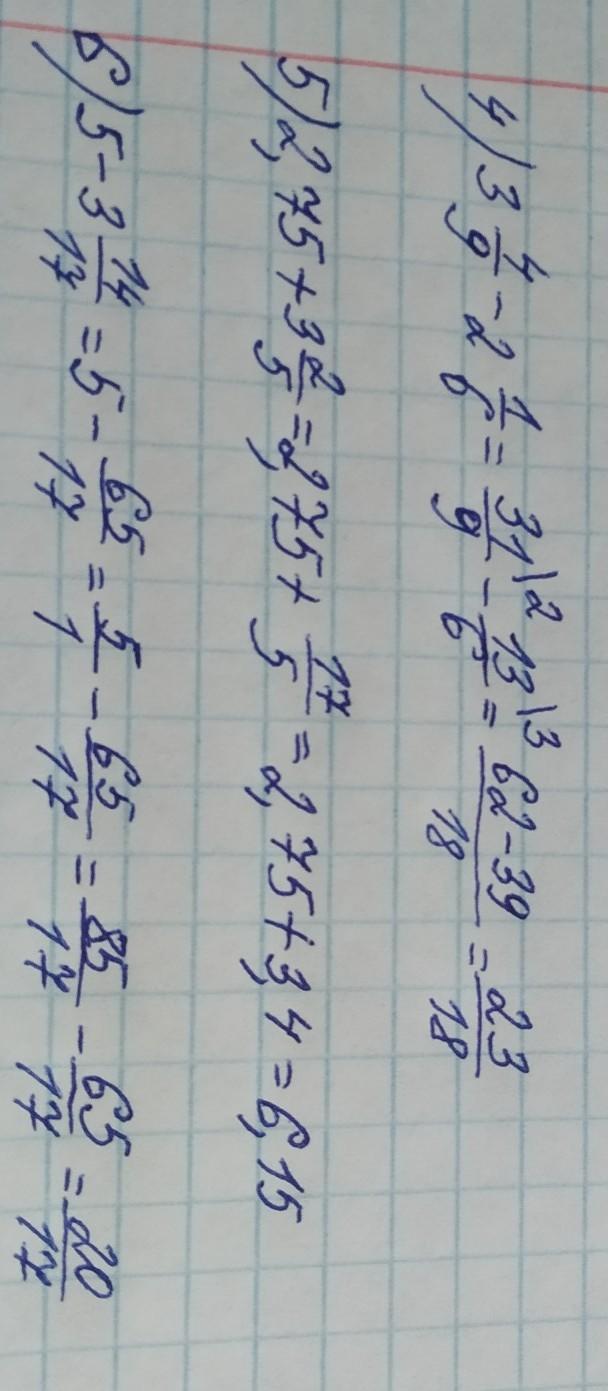 4) 3 4/9 - 2 1/6 = 31\2/9 - 13\3/6 = 62-39/18 = 23/18
5) 2,75 + 3 2/5 = 2,75 + 17/5 = 2,75 + 3,4 = 6,15
6) 5 - 3 14/17 = 5 - 65/17 = 5/1 - 65/17 = 85/17 - 65/17 = 20/17